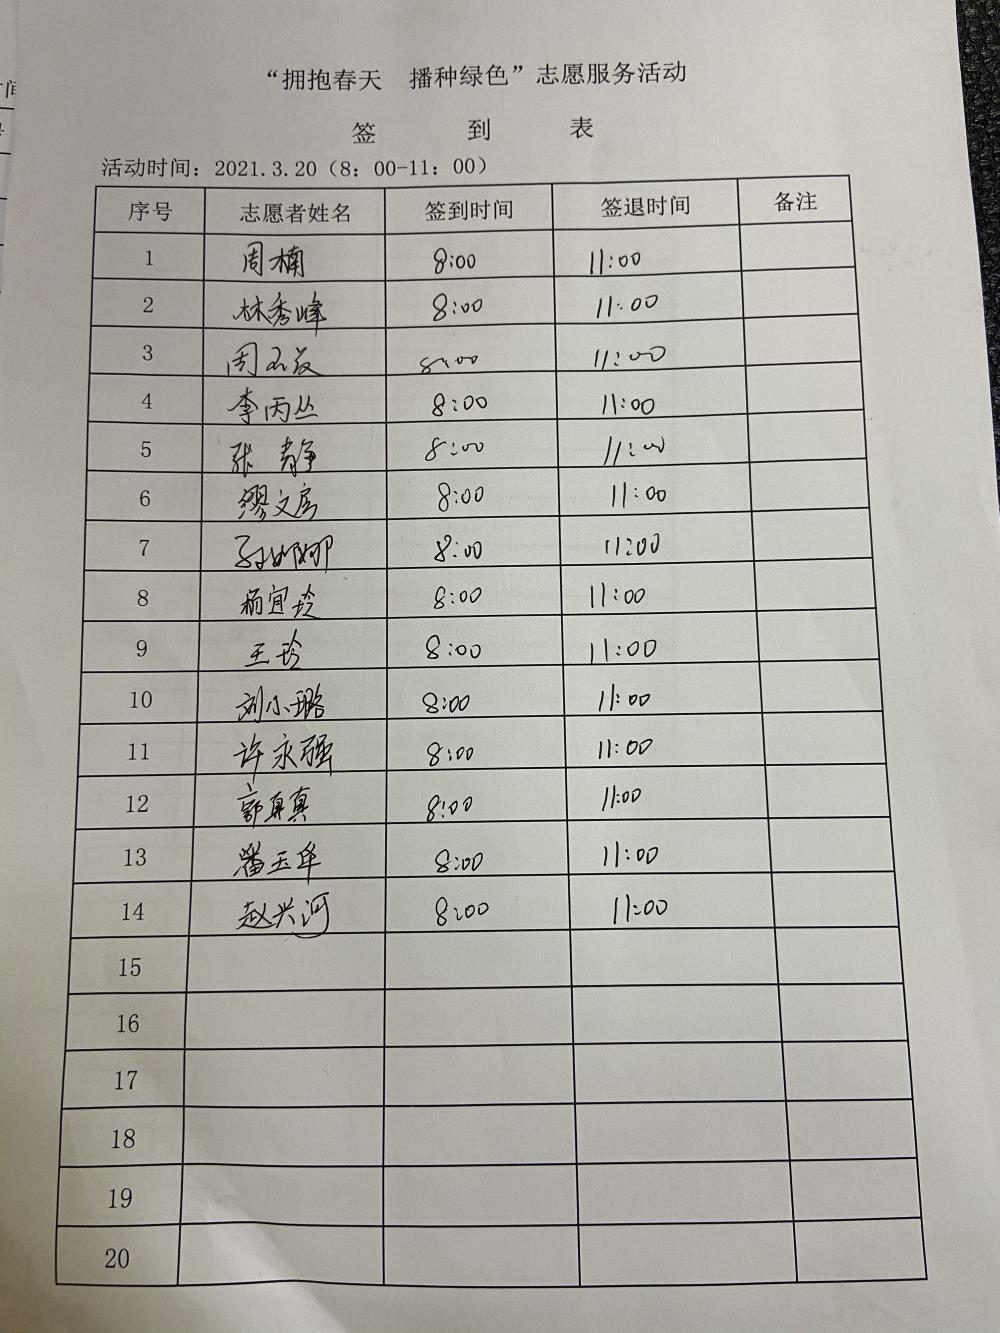 “拥抱春天 播种绿色”志愿服务活动
签 到 表
活动时间：2021.3.20（8：00-11：00）
序号 志愿者姓名 签到时间 签退时间 备注
1 周楠 8:00 11:00
2 林秀峰 8:00 11:00
3 周 8:00 11:00
4 李丙丛 8:00 11:00
5 张静 8:00 11:00
6 缪文房 8:00 11:00
7 孙娜娜 8:00 11:00
8 杨宜玲 8:00 11:00
9 王玲 8:00 11:00
10 刘小璐 8:00 11:00
11 许永强 8:00 11:00
12 郭真真 8:00 11:00
13 潘玉华 8:00 11:00
14 赵兴河 8:00 11:00
15
16
17
18
19
20